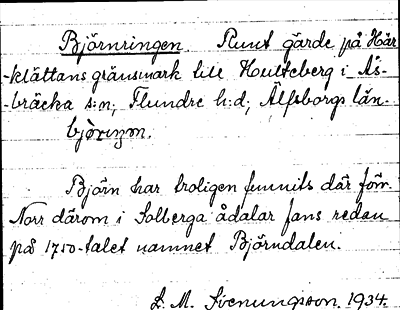 Björnringen. Runt gärde på Här-
-klättans gränsmark till Hulteberg i Ås-
-bräcka s:n, Flundre h:d, Älfsborgs län.
björingen.
Björn har troligen funnits där förr.
Norr därom i Solberga ådalar fans redan
på 1750-talet namnet Björndalen.
L. M. Svenungsson. 1934.